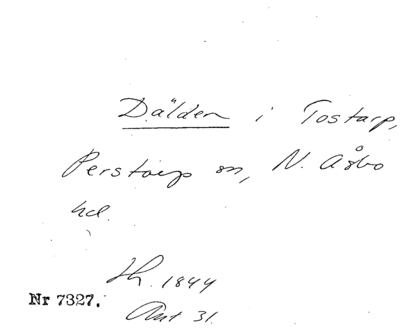 Dälden i Tostarp,
Perstorp sn, N. Åsbo
hd.
Lh. 1844
Nr 7327.
Ant 31.